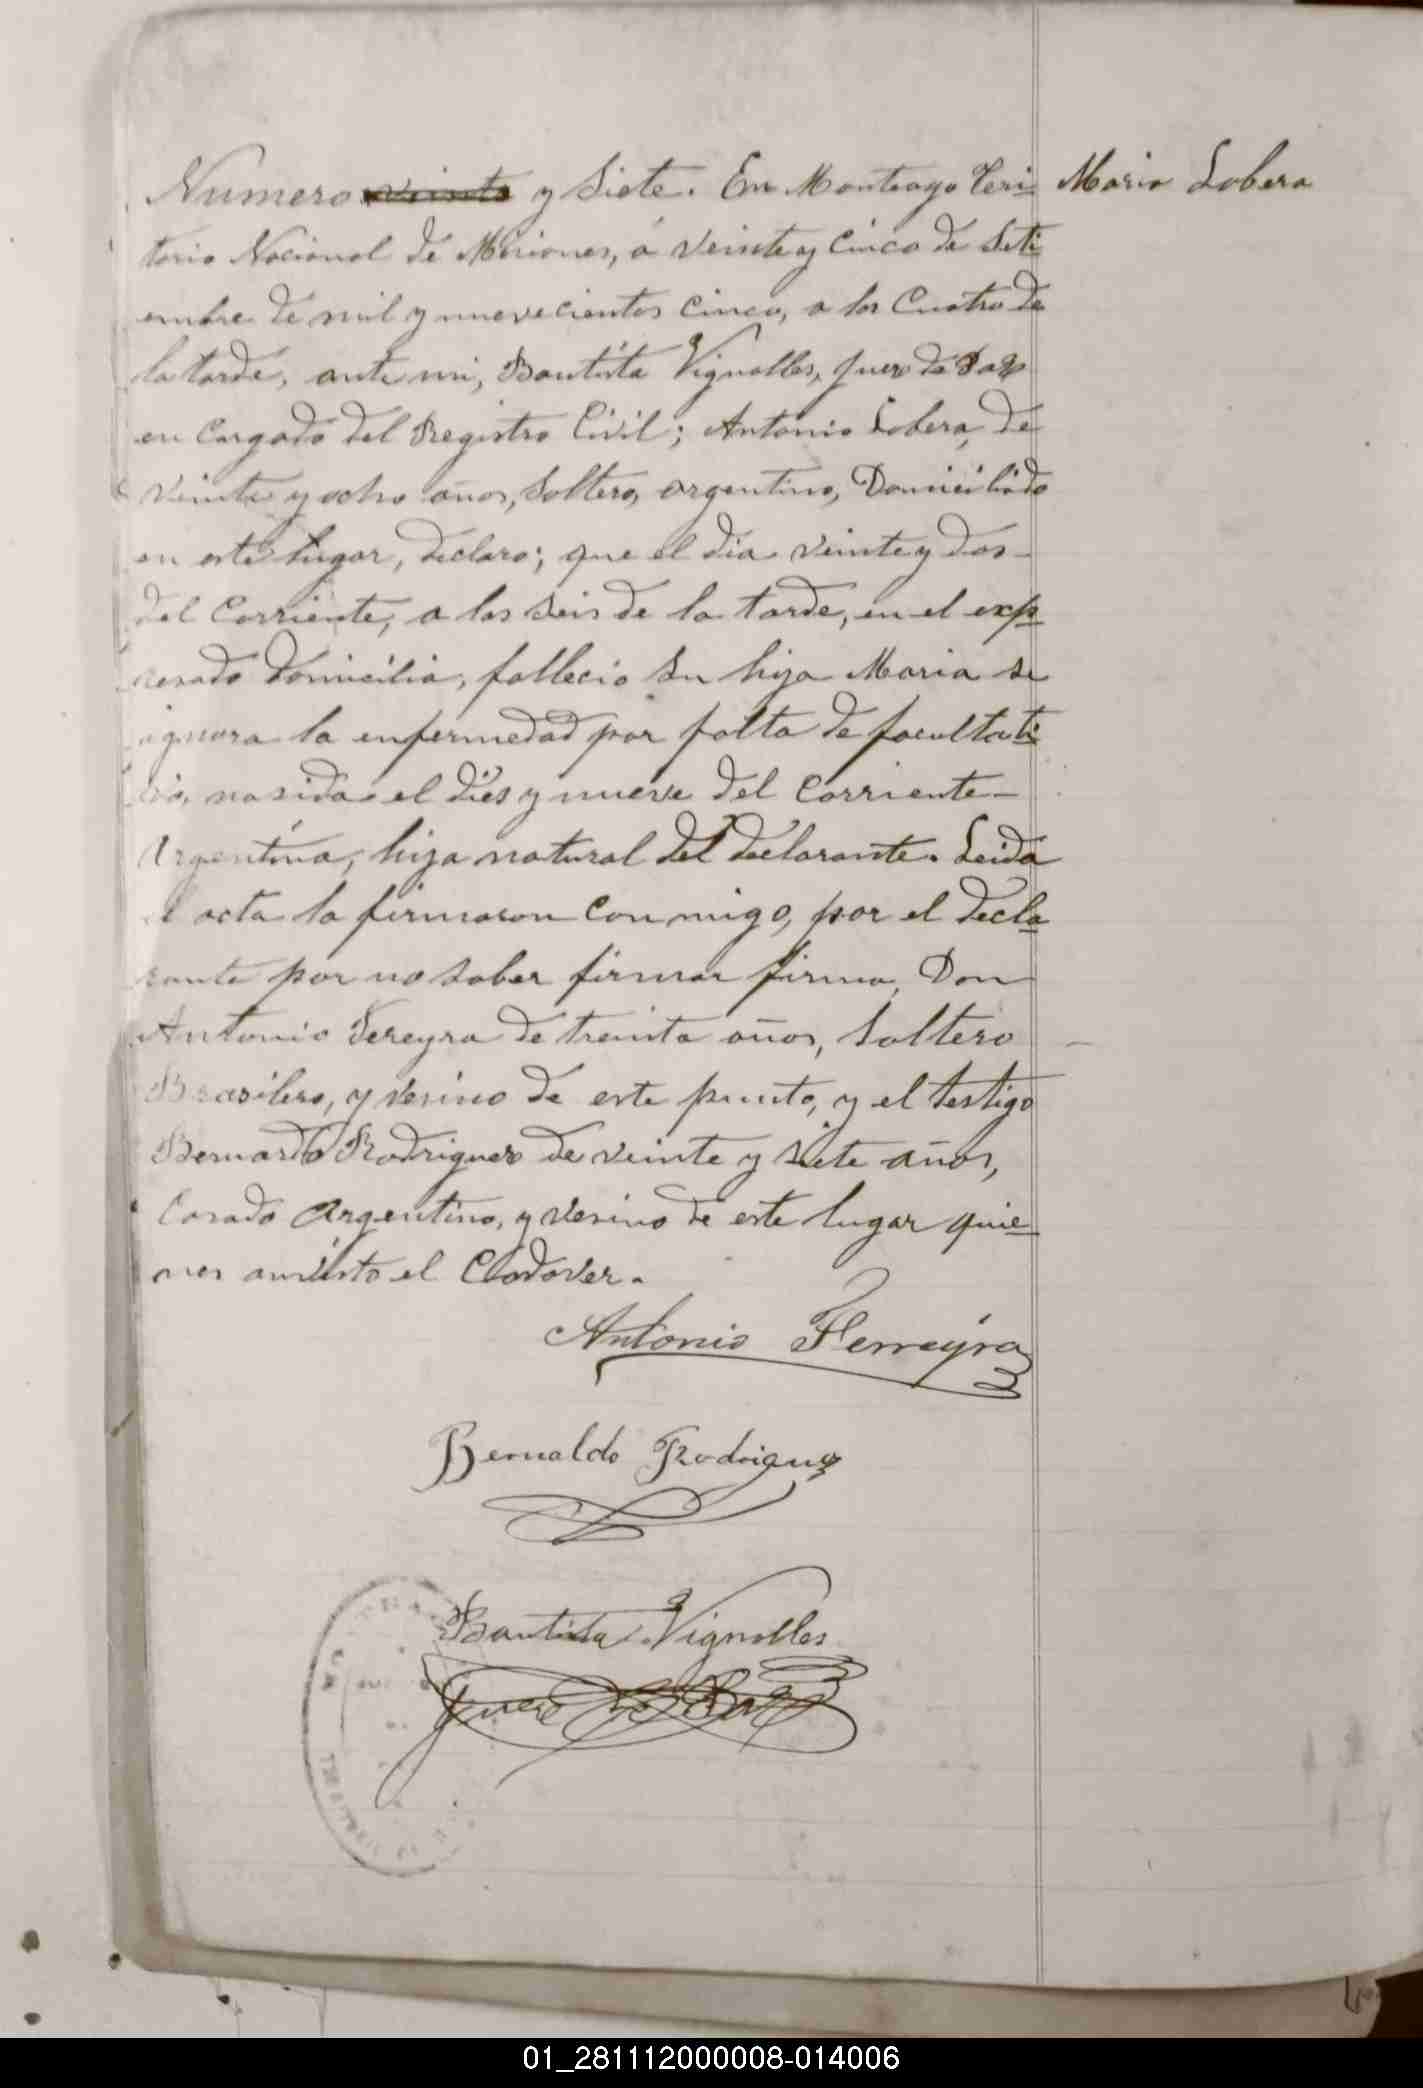 Numero veinte y Siete. En Monteago Teri
Maria Lobera
torio Nacional de Misiones, á veinte y Cinco de Seti
embre de mil y nuevecientos cinco, a las Cuatro de
la tarde, ante mi, Bautista Vignolles, Juez de Paz
en Cargado del Registro Civil; Antonio Lobera, de
veinte y ocho años, Soltero, argentino, Domiciliado
en este Lugar, declaro; que el dia veinte y dos
del Corriente, a las Seis de la tarde, en el exp
resado Domicilio, fallecio Su hija Maria se
ignora la enfermedad por falta de facultati
vo, nasida el dies y nueve del Corriente
Argentina, hija natural del declarante. Leida
el acta la firmaron Con migo, por el decla
rante por no saber firmar firma, Don
Antonio Fereyra de treinta años, Soltero
Brasilero, y vesino de este punto, y el testigo
Bernardo Rodriguez de veinte y siete años,
Casado Argentino, y vesino de este lugar quie
nes an visto el Cadover.
Antonio Ferreyra
Bernaldo Rodriguez
Bautista Vignolles
Juez de Paz
01_281112000008-014006